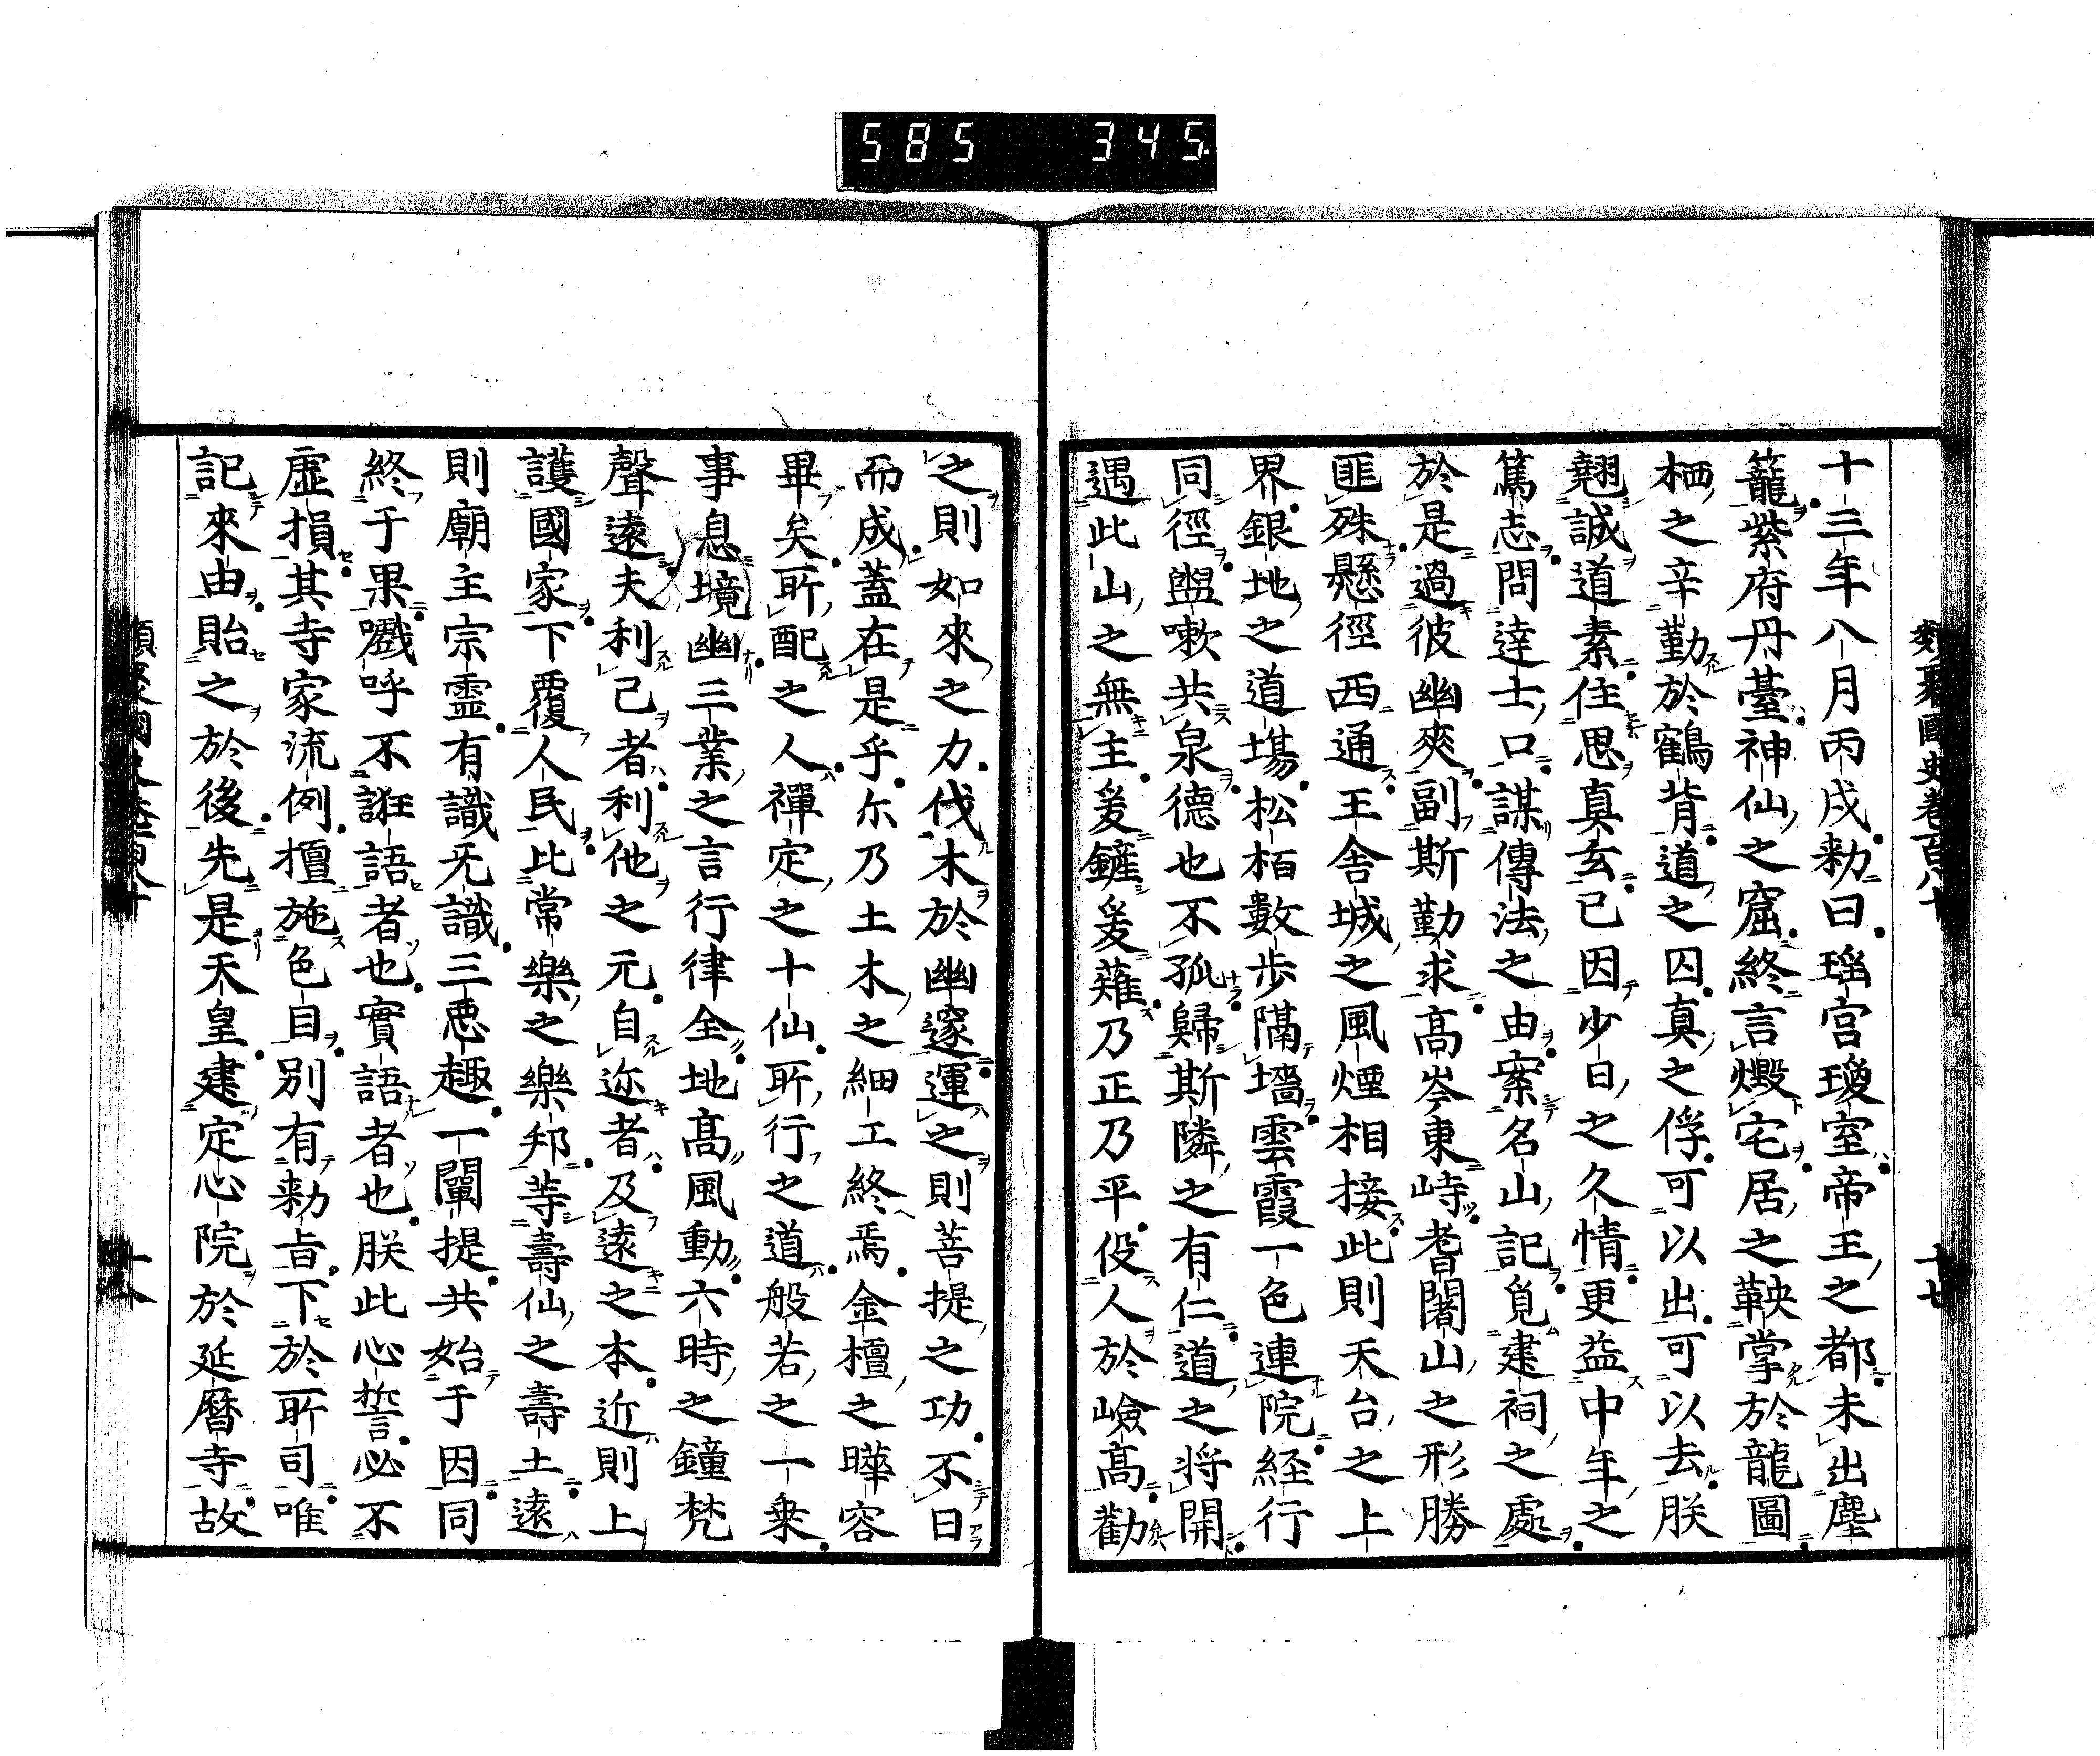 585 345
類聚國史卷百八十 十七
十三年八月丙戌勅曰瑶宫瓊室帝王之都未出塵
籠紫府丹臺神仙之窟終言燬宅居之鞅掌於龍圖
栖之辛勤於鶴背道之囚真之俘可以出可以去朕
翹誠道素住思真玄已因少日之久情更益中年之
篤志問達士口謀傳法之由案名山記覓建祠之處
於是過彼幽夾副斯勤求高岑東峙耆闍山之形勝
匪殊懸徑西通王舍城之風煙相接此則天台之上
界銀地之道場松栢數步隔墻雲霞一色連院経行
同徑盥嗽共泉德也不孤歸斯隣之有仁道之将開
遇此山之無主爰鏟爰薙乃正乃平役人於嶮高勸
之則如來之力伐木於幽邃運之則菩提之功不日
而成蓋在是乎尓乃土木之細工終焉金檀之曄容
畢矣所配之人禪定之十仙所行之道般若之一乗
事息境幽三業之言行律全地高風動六時之鐘梵
聲遠夫利己者利他之元自迩者及遠之本近則上
護國家下覆人民比常樂之樂邦等壽仙之壽土遠
則廟主宗霊有識旡識三悪趣一闡提共始于因同
終于果嚱呼不誑語者也實語者也朕此心誓必不
虛損其寺家流例擅施色目別有勅旨下於所司唯
記來由貽之於後先是天皇建定心院於延暦寺故
類聚國史卷百八十 十八